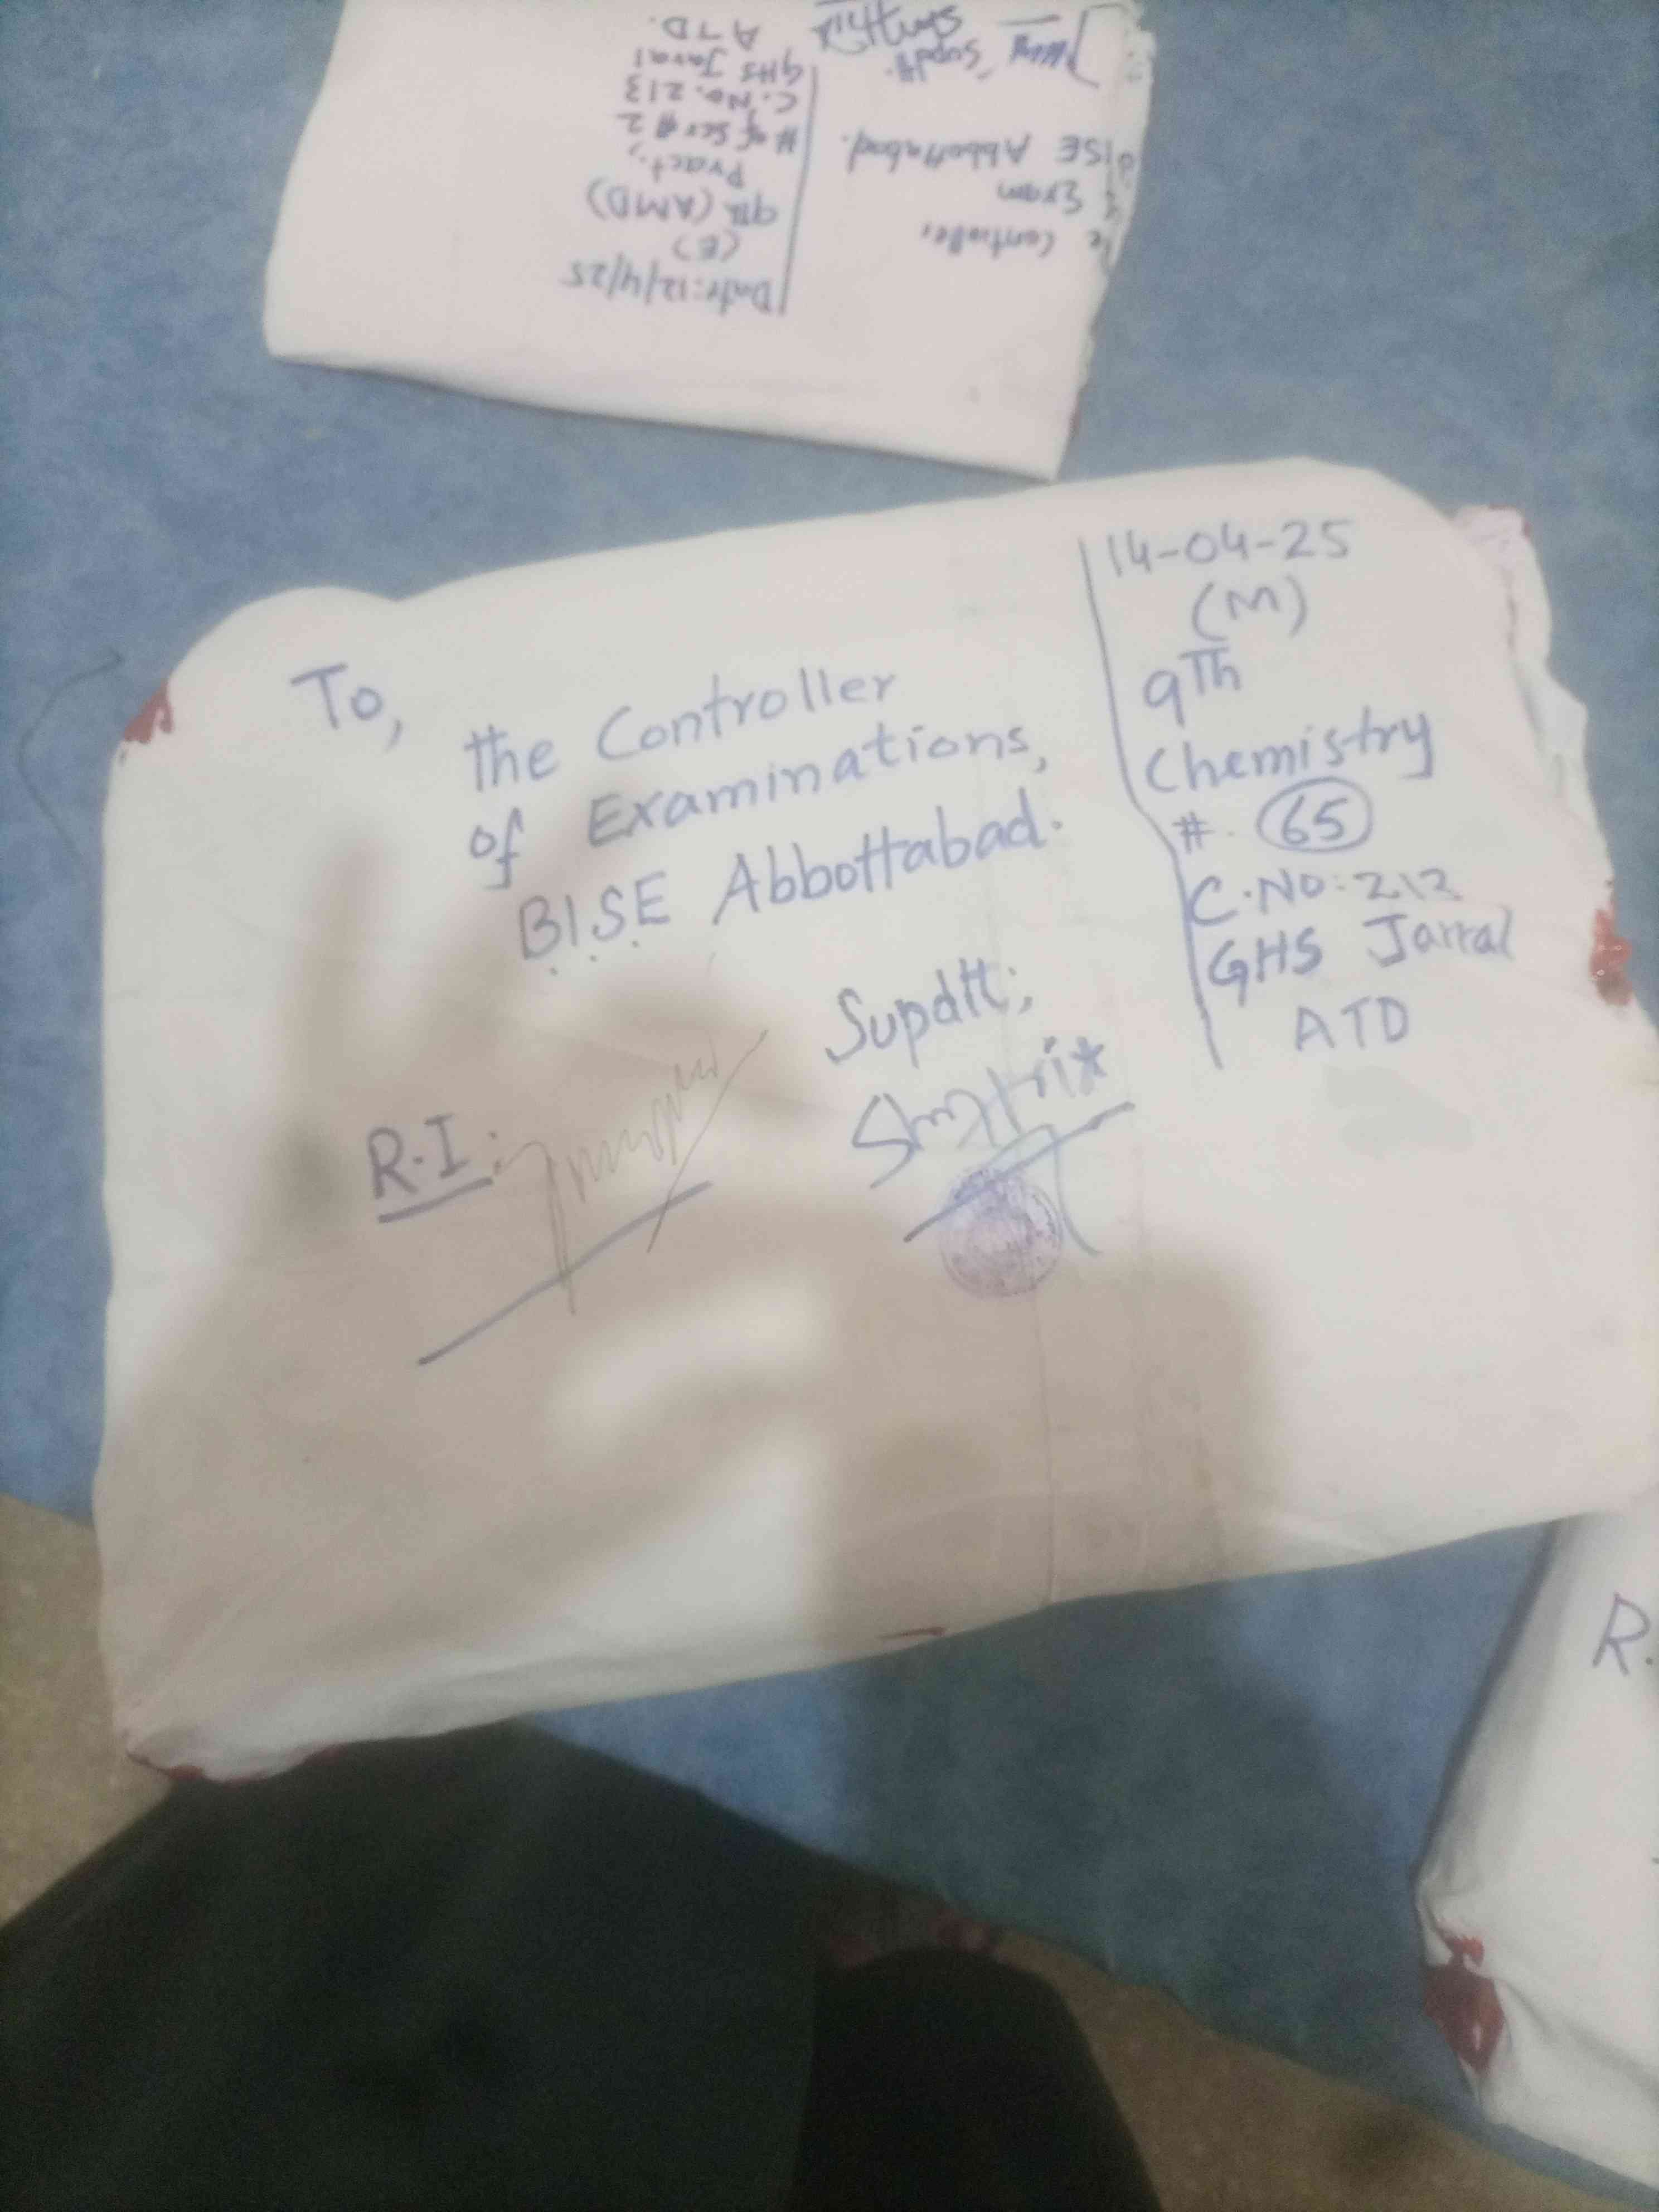 To,
the Controller
of Examinations,
B.I.S.E Abbottabad.
Supdtt;
R.I:
14-04-25
(M)
9Th
Chemistry
#. 65
C.NO: 212
GHS Jarral
ATD
Controller
Exam
BISE Abbottabad.
Supdtt.
Date: 12/4/25
(E)
9th (AMD)
Pract,
# of Scr # 2
C.No. 213
GHS Jaral
ATD.
R.